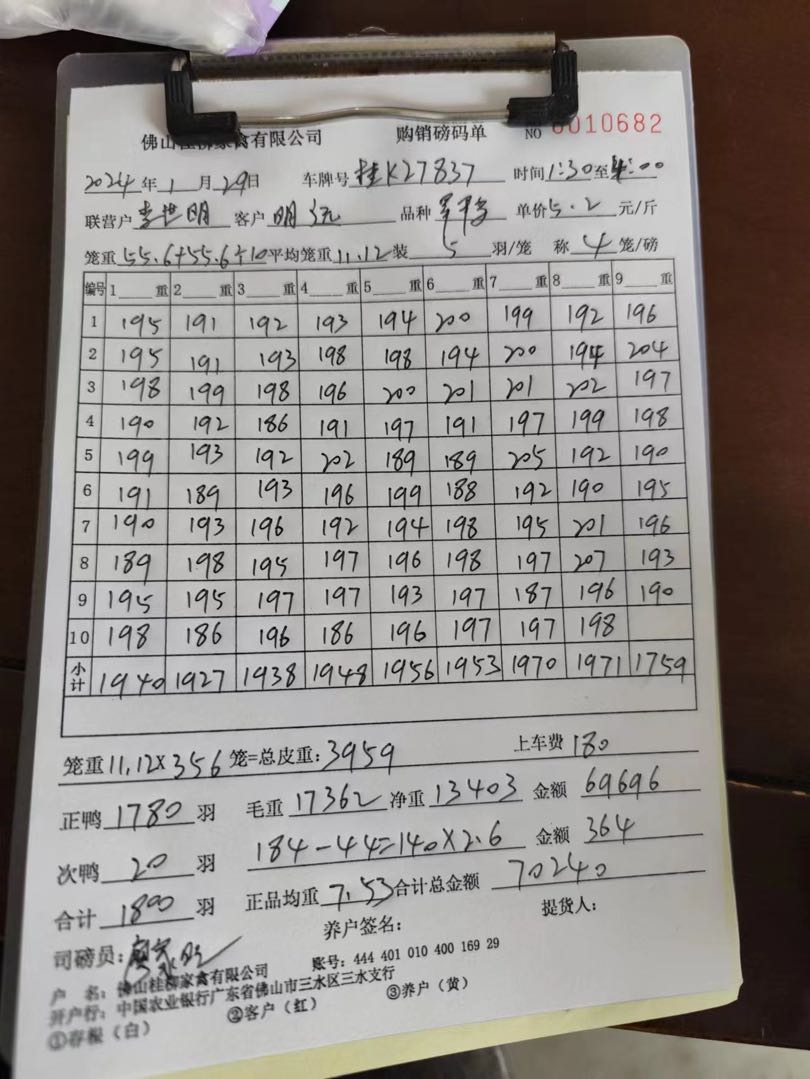 佛山桂柳家禽有限公司 购销磅码单 NO 0010682
2024年1月29日 车牌号 桂K27837 时间1:30至4:00
联营户 李世明 客户 明记 品种 单价5.2元/斤
笼重55.6+55.6÷10平均笼重11.12装5羽/笼 称4笼/磅
编号 1 重 2 重 3 重 4 重 5 重 6 重 7 重 8 重 9 重
1 195 191 192 193 194 200 199 192 196
2 195 191 193 198 198 194 200 194 204
3 198 199 198 196 200 201 201 202 197
4 190 192 186 191 197 191 197 199 198
5 199 193 192 202 189 189 205 192 190
6 191 189 193 196 199 188 192 190 195
7 190 193 196 192 194 198 195 201 196
8 189 198 195 197 196 198 197 207 193
9 195 195 197 197 193 197 187 196 190
10 198 186 196 186 196 197 197 198
小计 1940 1927 1938 1948 1956 1953 1970 1971 1759
笼重11.12×356笼=总皮重:3959 上车费180
正鸭1780羽 毛重17362净重13403金额69696
次鸭20羽 184-44=140×2.6 金额364
合计1800羽 正品均重7.53合计总金额70240
司磅员: 养户签名: 提货人:
户 名:佛山桂柳家禽有限公司 账号:444 401 010 400 169 29
开户行:中国农业银行广东省佛山市三水区三水支行
①存根(白) ②客户(红) ③养户(黄)